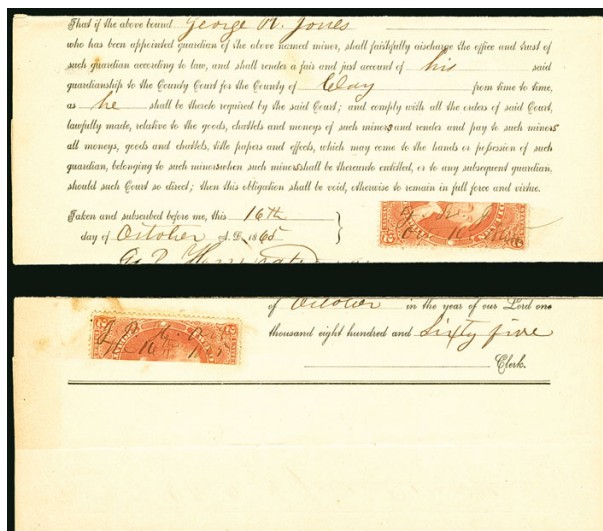 That if the above bound George R. Jones
who has been appointed guardian of the above named minor, shall faithfully discharge the office and trust of
such guardian according to law, and shall render a fair and just account of his said
guardianship to the County Court for the County of Clay from time to time,
as he shall be thereto required by the said Court; and comply with all the orders of said Court,
lawfully made, relative to the goods, chattels and moneys of such minors and render and pay to such minors
all moneys, goods and chattels, title papers and effects, which may come to the hands or possession of such
guardian, belonging to such minors when such minors shall be thereunto entitled, or to any subsequent guardian,
should such Court so direct; then this obligation shall be void, otherwise to remain in full force and virtue.
Taken and subscribed before me, this 16th
day of October A. D. 1865
of October in the year of our Lord one
thousand eight hundred and Sixty five
Clerk.